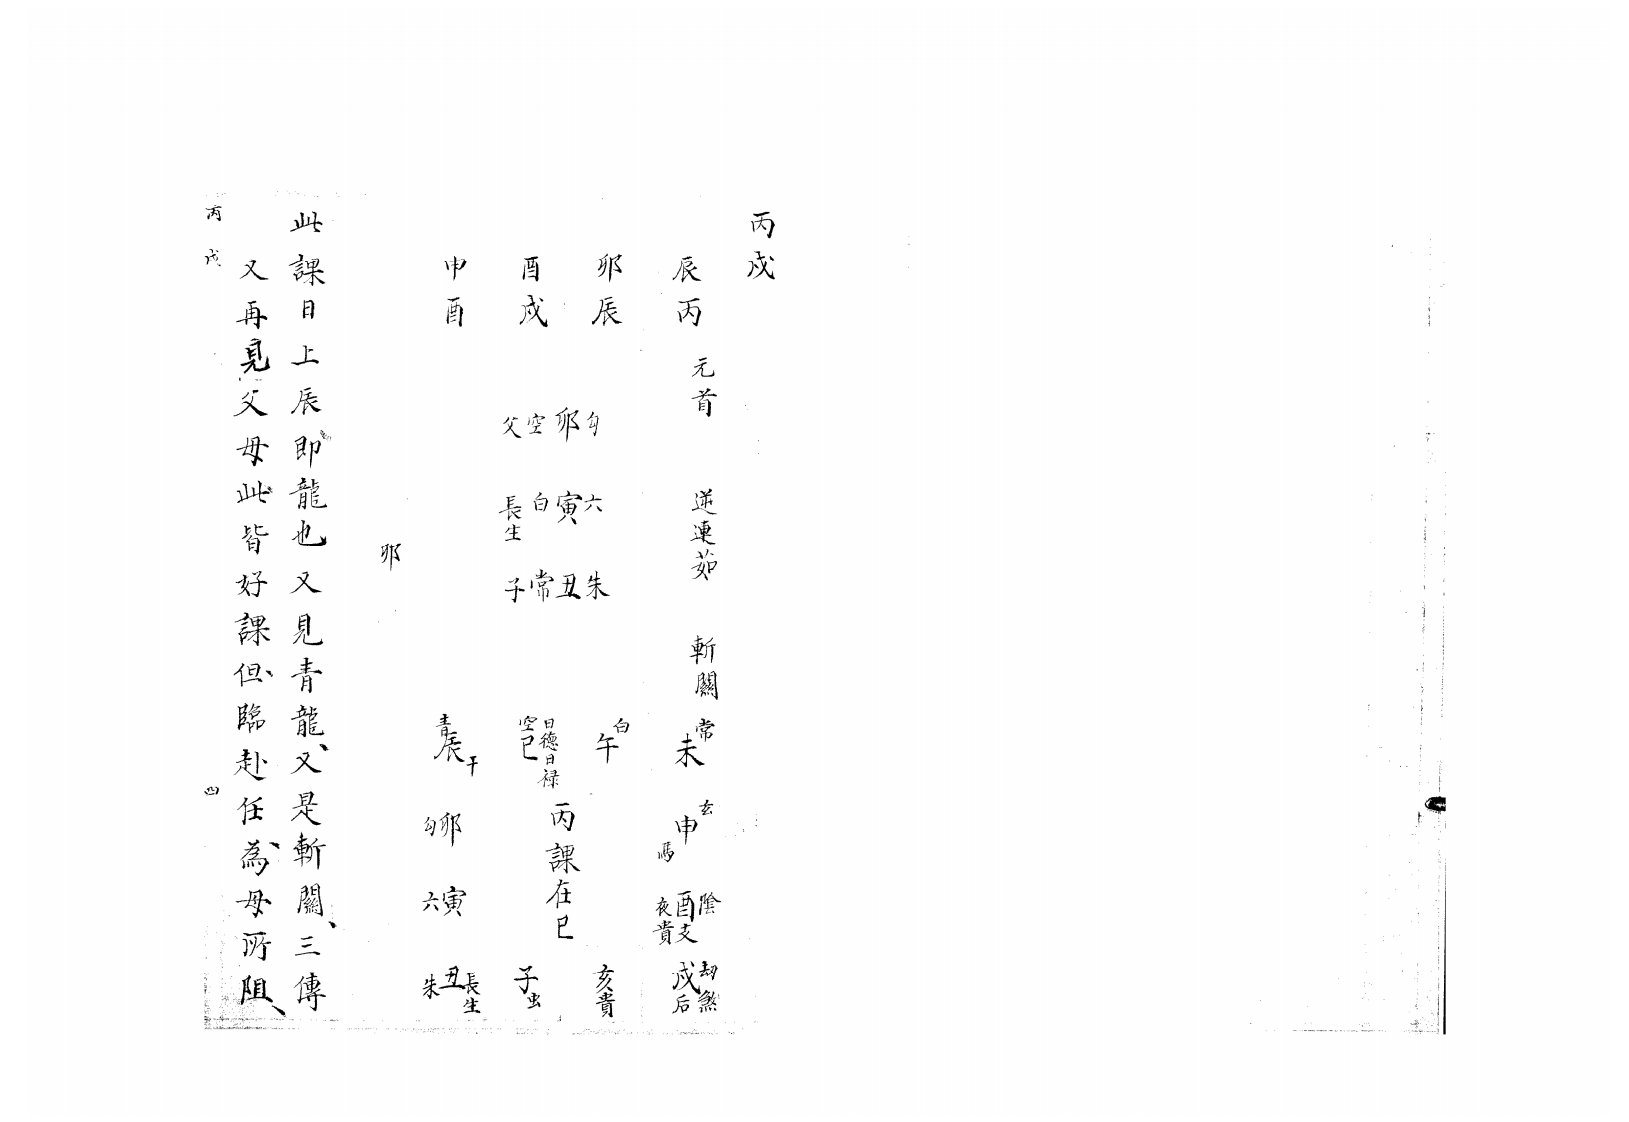 丙戌
辰丙 元首 逆連茹 斬關
卯辰
酉戌
申酉
勾卯空父
六寅白長生
朱丑常子
常未
玄申馮
陰酉支夜貴
劫煞戌后
白午
亥貴
日德日禄
空巳
丙課在巳
子虫
青辰干
卯勾
寅六
丑長生朱
卯
此課日上辰即龍也又見青龍、又是斬關、三傳
又再見父母此皆好課但、臨赴任、為母所阻、
丙戌 四